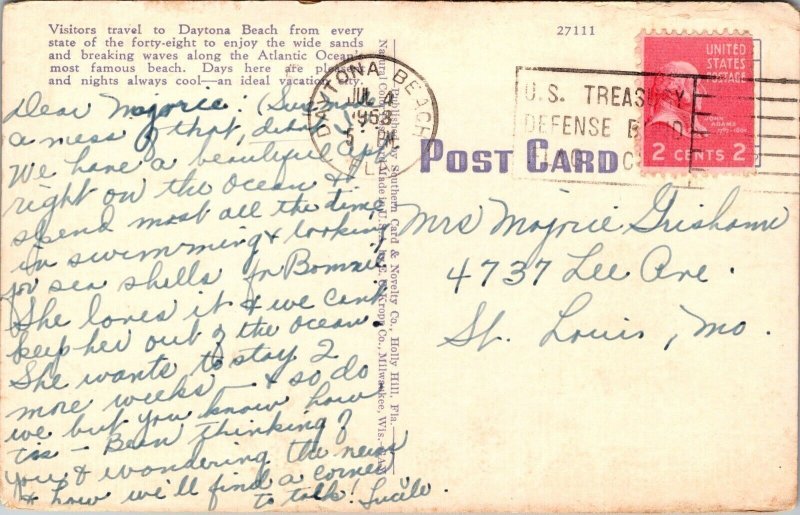 Visitors travel to Daytona Beach from every
state of the forty-eight to enjoy the wide sands
and breaking waves along the Atlantic Ocean's
most famous beach. Days here are pleasant
and nights always cool—an ideal vacation city.
27111
UNITED
STATES
POSTAGE
JOHN
ADAMS
1797-1801
2 CENTS 2
DAYTONA BEACH
JUL 4
1953
PM
FLA
U.S. TREASURY
DEFENSE BONDS
POST CARD
Published by Southern Card & Novelty Co., Holly Hill, Fla.
Made in U.S.A. by E. C. Kropp Co., Milwaukee, Wis.
Dear Majorie:
a mess of that,
We have a beautiful
right on the ocean &
spend most all the time
in swimming & looking
for sea shells for Bonnie
She loves it & we cant
keep her out of the ocean.
She wants to stay 2
more weeks — & so do
we but you know how
tis — Been thinking of
you & wondering the news
& how we'll find a corner
to talk! Lucile.
Mrs Majorie Grishame
4737 Lee Ave.
St. Louis, Mo.